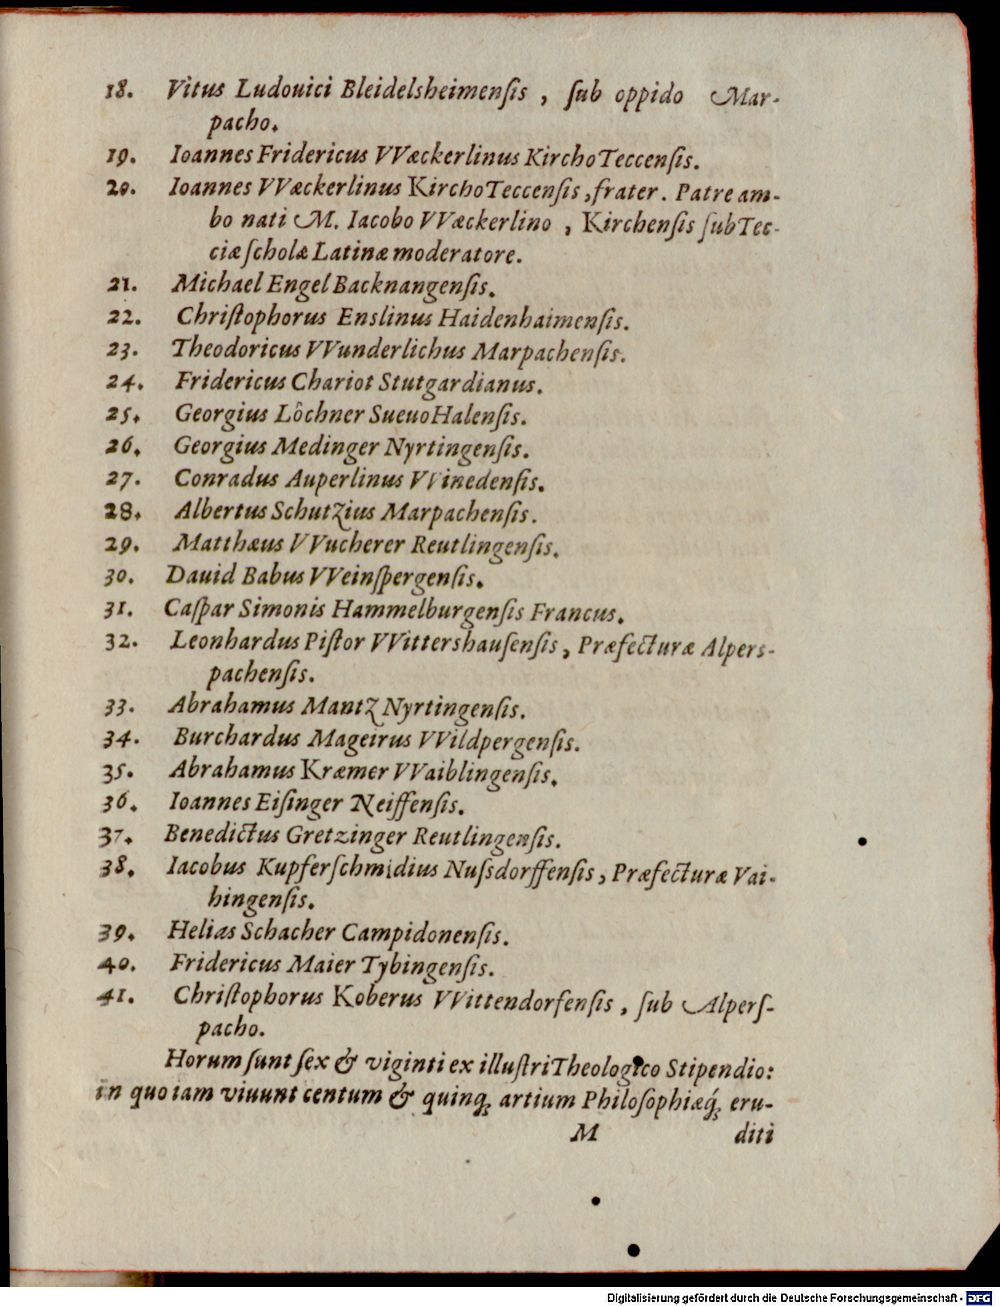 18. Vitus Ludouici Bleidelsheimenſis , ſub oppido Mar-
pacho.
19. Ioannes Fridericus VVæckerlinus KirchoTeccenſis.
20. Ioannes VVæckerlinus KirchoTeccenſis, frater. Patre am-
bo nati M. Iacobo VVæckerlino , Kirchenſis ſub Tec-
ciæ ſcholæ Latinæ moderatore.
21. Michael Engel Backnangenſis.
22. Chriſtophorus Enslinus Haidenhaimenſis.
23. Theodoricus VVunderlichus Marpachenſis.
24. Fridericus Chariot Stutgardianus.
25. Georgius Lôchner SueuoHalenſis.
26. Georgius Medinger Nyrtingenſis.
27. Conradus Auperlinus VVinedenſis.
28. Albertus Schutzius Marpachenſis.
29. Matthæus VVucherer Reutlingenſis.
30. Dauid Babus VVeinſpergenſis.
31. Caſpar Simonis Hammelburgenſis Francus.
32. Leonhardus Piſtor VVittershauſenſis, Præfecturæ Alpers-
pachenſis.
33. Abrahamus Mantz Nyrtingenſis.
34. Burchardus Mageirus VVildpergenſis.
35. Abrahamus Kræmer VVaiblingenſis.
36. Ioannes Eiſinger Neiffenſis.
37. Benedictus Gretzinger Reutlingenſis.
38. Iacobus Kupferſchmidius Nuſsdorffenſis, Præfecturæ Vai-
hingenſis.
39. Helias Schacher Campidonenſis.
40. Fridericus Maier Tybingenſis.
41. Chriſtophorus Koberus VVittendorfenſis, ſub Alperſ-
pacho.
Horum ſunt ſex & viginti ex illuſtri Theologico Stipendio:
in quo iam viuunt centum & quinq; artium Philoſophiæq́; eru-
M diti
Digitalisierung gefördert durch die Deutsche Forschungsgemeinschaft - DFG